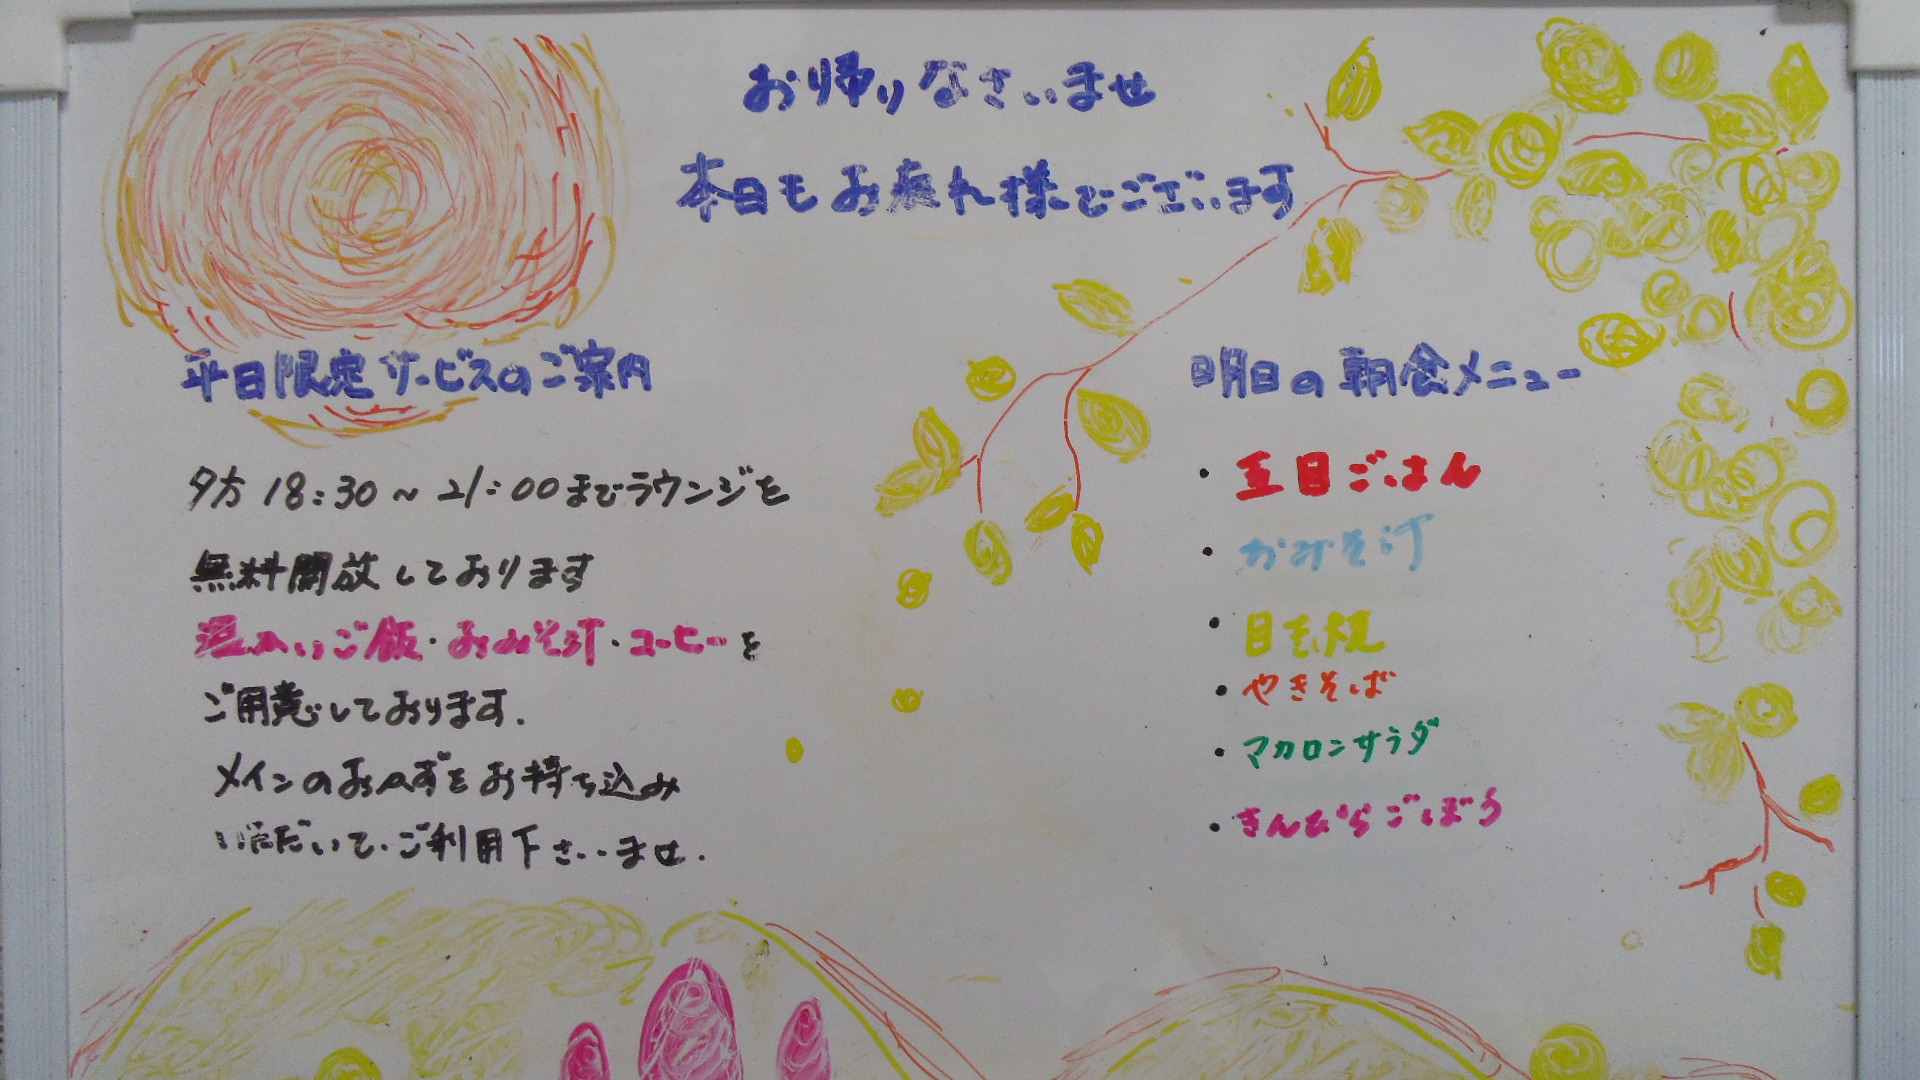 お帰りなさいませ
本日もお疲れ様でございます
平日限定サービスのご案内
夕方 18:30 ~ 21:00までラウンジを
無料開放しております
温かいご飯・おみそ汁・コーヒーを
ご用意しております.
メインのおかずをお持ち込み
いただいて、ご利用下さいませ.
明日の朝食メニュー
・五目ごはん
・おみそ汁
・目玉焼
・やきそば
・マカロンサラダ
・きんぴらごぼう